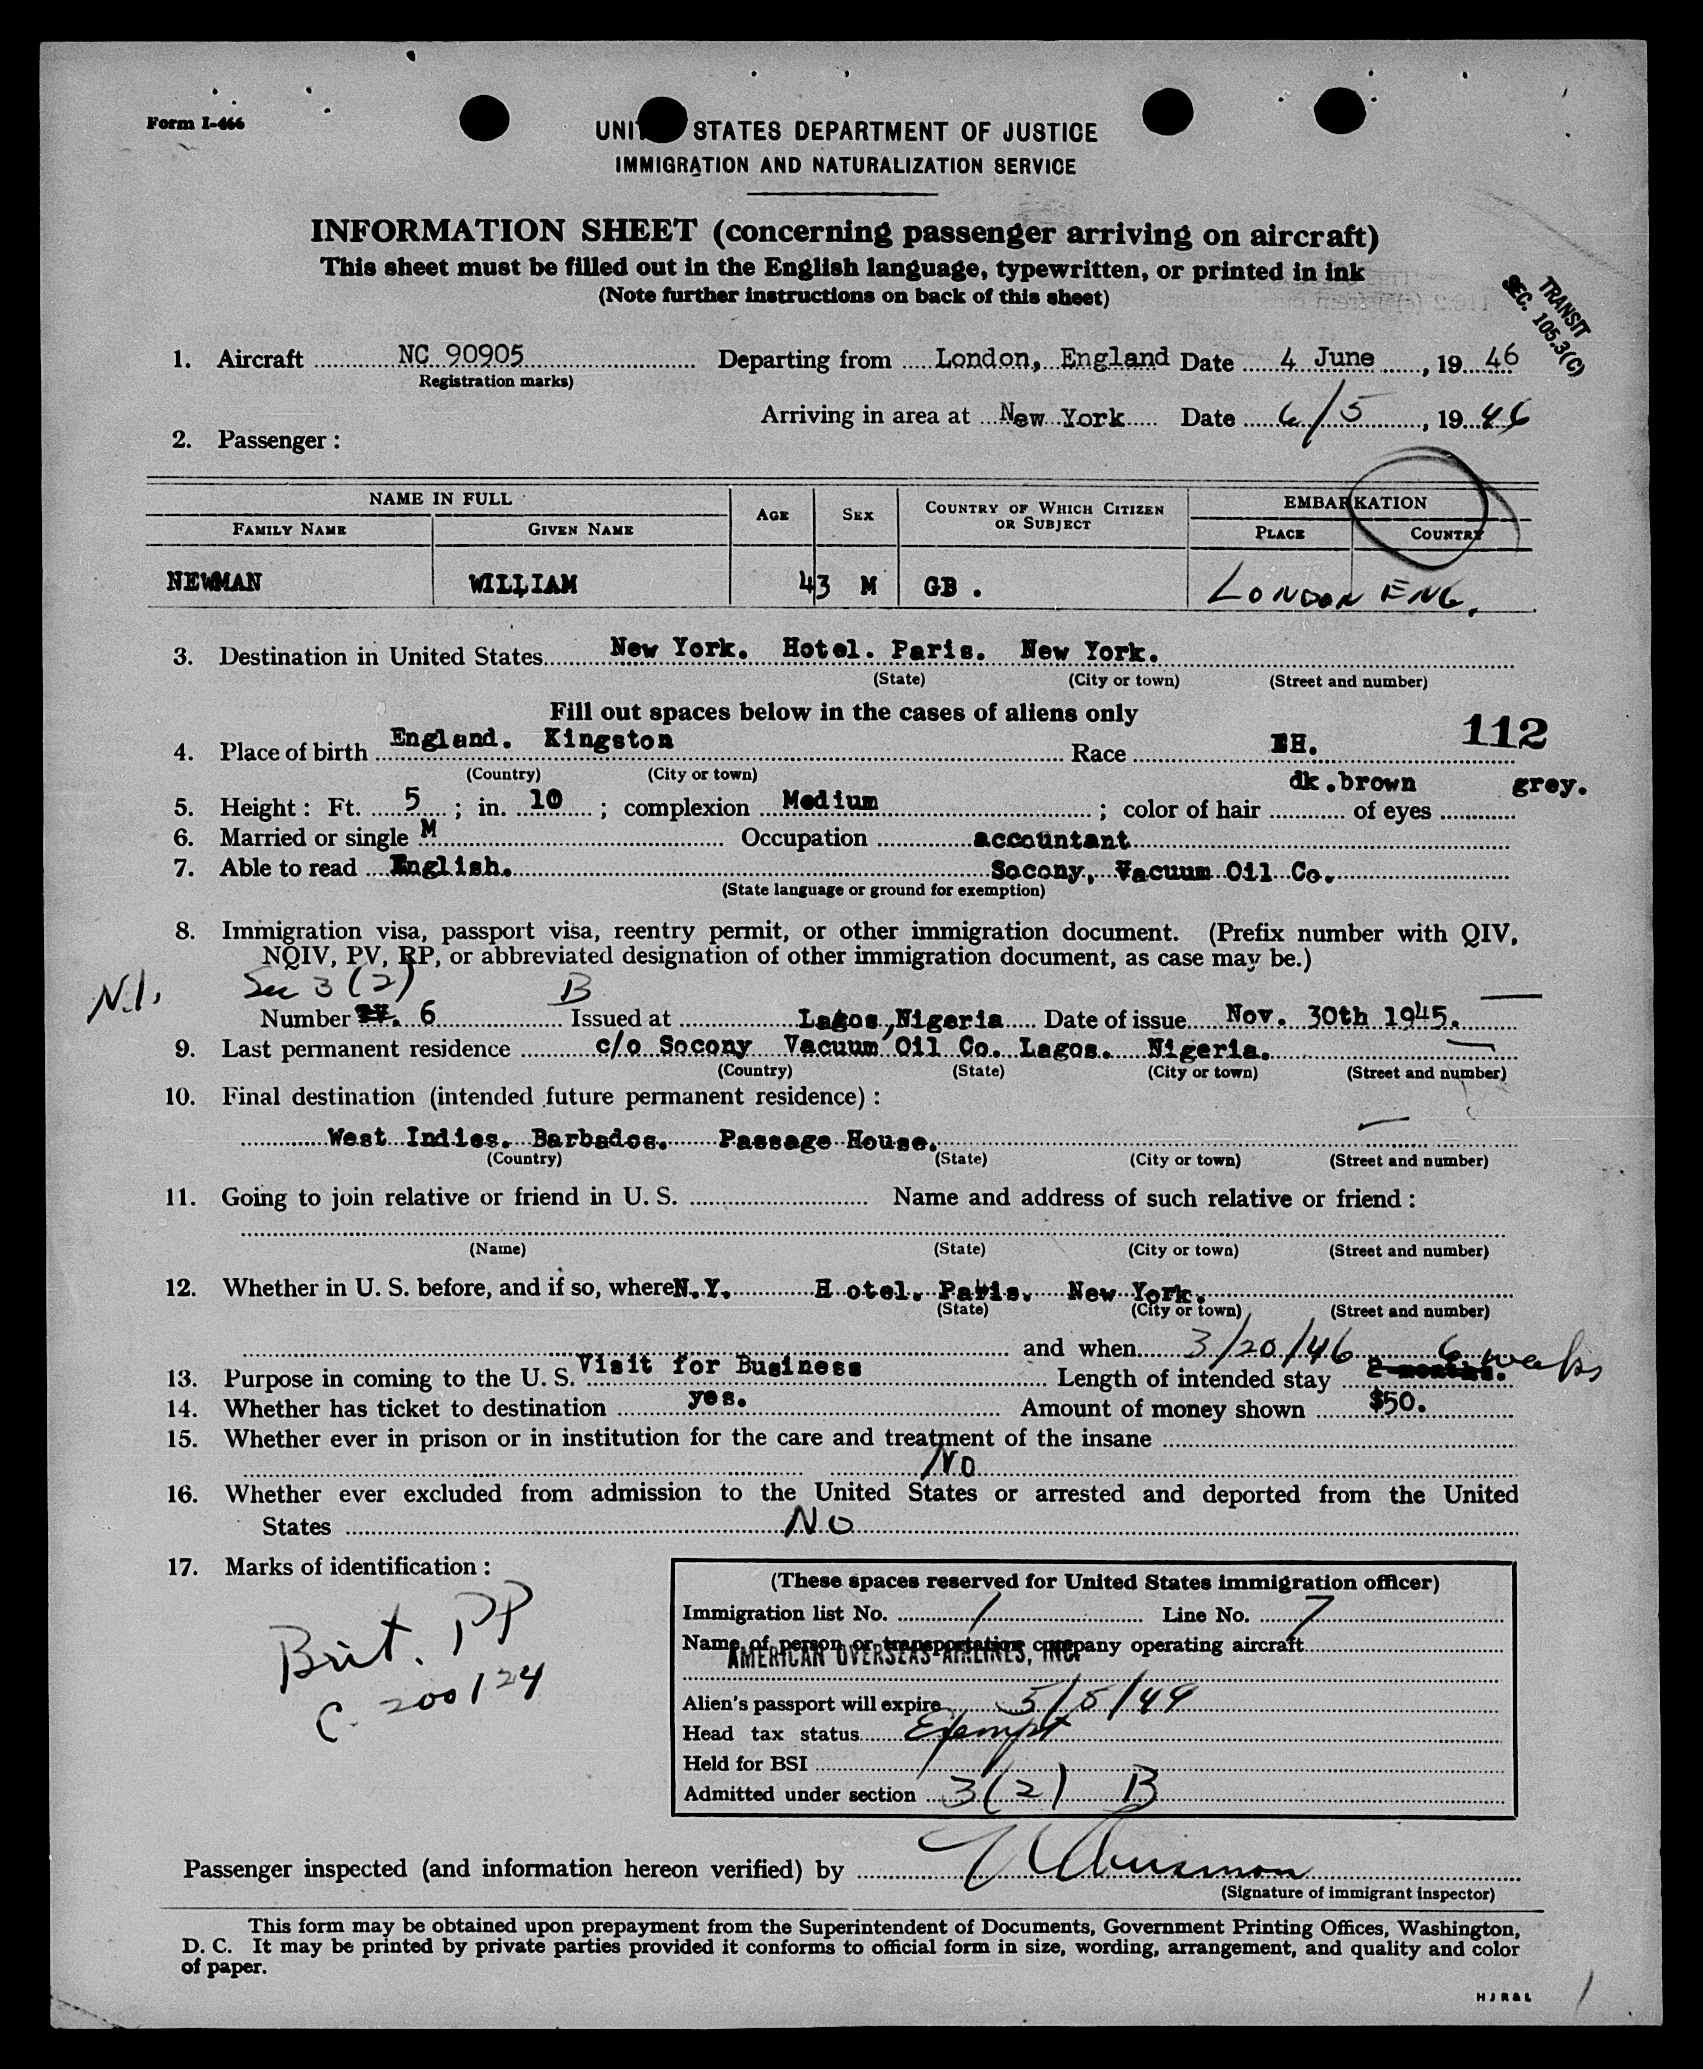 Form I-466
UNI STATES DEPARTMENT OF JUSTICE
IMMIGRATION AND NATURALIZATION SERVICE
INFORMATION SHEET (concerning passenger arriving on aircraft)
This sheet must be filled out in the English language, typewritten, or printed in ink
(Note further instructions on back of this sheet)
TRANSIT
SEC. 105.3(C)
1. Aircraft NC 90905 Departing from London, England Date 4 June, 19 46
Registration marks)
Arriving in area at New York Date 6/5, 19 46
2. Passenger:
NAME IN FULL AGE SEX COUNTRY OF WHICH CITIZEN OR SUBJECT EMBARKATION
FAMILY NAME GIVEN NAME PLACE COUNTRY
NEWMAN WILLIAM 43 M GB. LONDON ENG.
3. Destination in United States New York. Hotel. Paris. New York.
(State) (City or town) (Street and number)
Fill out spaces below in the cases of aliens only
112
4. Place of birth England. Kingston Race EH.
(Country) (City or town)
5. Height: Ft. 5; in. 10; complexion Medium; color of hair dk.brown of eyes grey.
6. Married or single M Occupation accountant
7. Able to read English. Socony, Vacuum Oil Co.
(State language or ground for exemption)
8. Immigration visa, passport visa, reentry permit, or other immigration document. (Prefix number with QIV,
NQIV, PV, RP, or abbreviated designation of other immigration document, as case may be.)
N.I. Sec 3 (2) B
Number PV. 6 Issued at Lagos, Nigeria Date of issue Nov. 30th 1945.
9. Last permanent residence c/o Socony Vacuum Oil Co. Lagos. Nigeria.
(Country) (State) (City or town) (Street and number)
10. Final destination (intended future permanent residence):
West Indies. Barbados. Passage House.
(Country) (State) (City or town) (Street and number)
11. Going to join relative or friend in U. S. Name and address of such relative or friend:
(Name) (State) (City or town) (Street and number)
12. Whether in U. S. before, and if so, where N.Y. Hotel. Paris. New York.
(State) (City or town) (Street and number)
and when 3/20/46
13. Purpose in coming to the U. S. Visit for Business Length of intended stay 2 months. 6 weeks
14. Whether has ticket to destination yes. Amount of money shown $50.
15. Whether ever in prison or in institution for the care and treatment of the insane
No
16. Whether ever excluded from admission to the United States or arrested and deported from the United
States No
17. Marks of identification:
Brit. PP
C. 200124
(These spaces reserved for United States immigration officer)
Immigration list No. 1 Line No. 7
Name of person or transportation company operating aircraft
AMERICAN OVERSEAS AIRLINES, INC.
Alien's passport will expire 5/5/49
Head tax status Exempt
Held for BSI
Admitted under section 3(2) B
Passenger inspected (and information hereon verified) by
(Signature of immigrant inspector)
This form may be obtained upon prepayment from the Superintendent of Documents, Government Printing Offices, Washington,
D. C. It may be printed by private parties provided it conforms to official form in size, wording, arrangement, and quality and color
of paper.
H J R & L